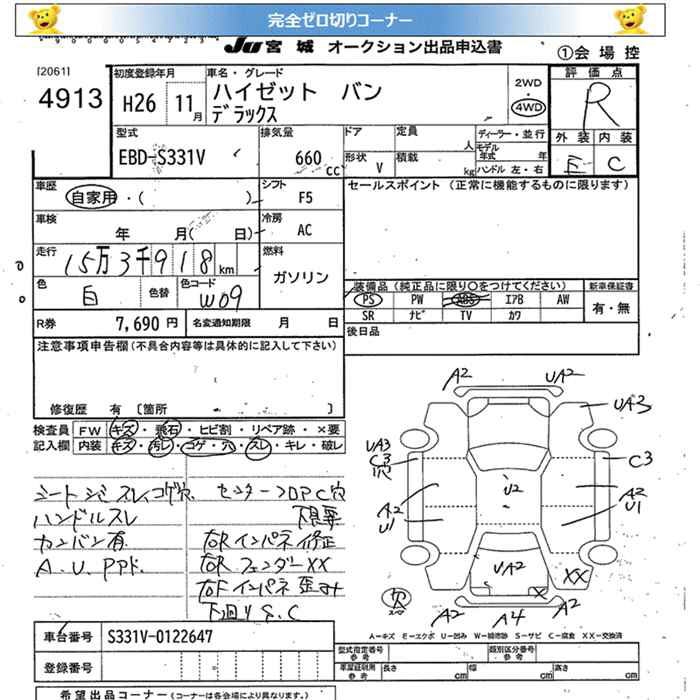 完全ゼロ切りコーナー
JU宮城 オークション出品申込書
①会場控
[2061]
4913
初度登録年月
H26 11月
車名・グレード
ハイゼット バン
デラックス
2WD
4WD
評価点
R
外装 内装
E C
型式
EBD-S331V
排気量
660 cc
ドア
形状
V
定員
人
積載
kg
ディーラー・並行
モデル年式 年
ハンドル 左・右
車歴
自家用・( )
シフト
F5
セールスポイント (正常に機能するものに限ります)
車検
年 月( 日)
冷房
AC
走行
15万3千918km
燃料
ガソリン
色
白
色替
色コード
W09
装備品 (純正品に限り○をつけてください)
新車保証書
PS PW ABS エアB AW
有・無
SR ナビ TV カワ
R券
7,690円
名変通知期限 月 日
後日品
注意事項申告欄(不具合内容等は具体的に記入して下さい)
修復歴 有 〔箇所 〕
検査員記入欄
FW キズ・飛石・ヒビ割・リペア跡・×要
内装 キズ・汚レ・コゲ・穴・スレ・キレ・破レ
シートシミ スレ コゲ穴
ハンドルスレ
カンバン有
A.U.PPド.
下見要
右Rインパネ修正
右RフェンダーXX
右Fインパネ歪み
下回りS.C
A2 UA2
UA3
UA3
C3
穴
C3
A2
U1
U2
A2
U1
UA2
XX
X
穴
スペア
A2 A4 A2
A-キズ E-エクボ U-凹み W-補修跡 S-サビ C-腐食 XX-交換済
車台番号
S331V-0122647
登録番号
型式指定番号 参考
類別区分番号 参考
車庫証明用 参考
長さ 幅 高さ
cm
希望出品コーナー(コーナーは各会場により異なります。)